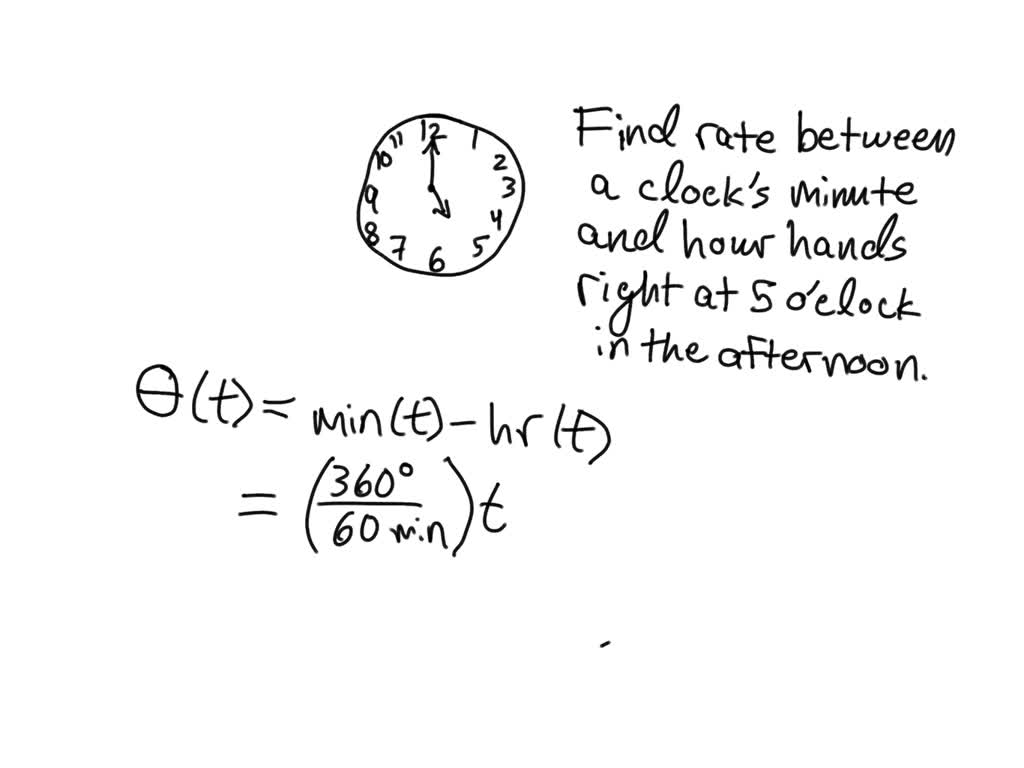 12
11
1
10
2
9
3
8
4
7
5
6
Find rate between
a clock's minute
and hour hands
right at 5 o'clock
in the afternoon.
θ(t) = min(t) - hr(t)
= (360°/60 min) t